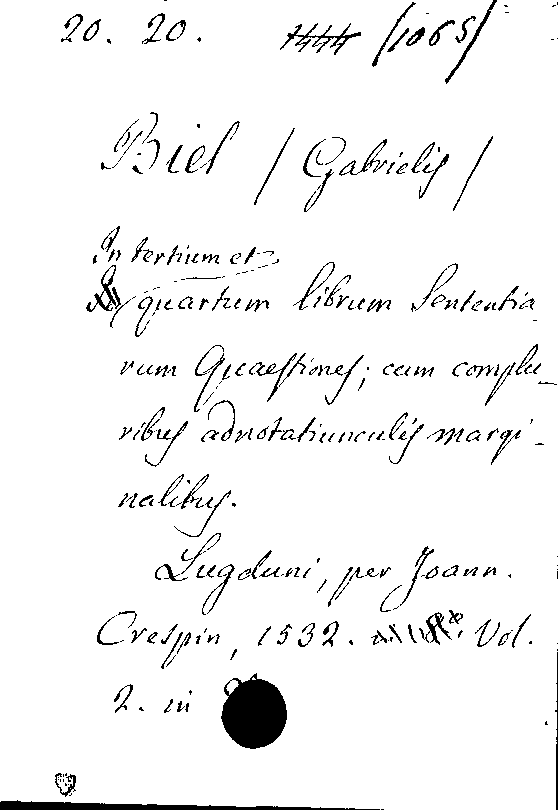 20. 20. 1444 (1065)
Biel / Gabrielis /
In tertium et
quartum librum Sententia
rum Quaestiones; cum complu_
ribus adnotatiunculis margi_
nalibus.
Lugduni, per Joann.
Crespin, 1532. Vol.
2. in